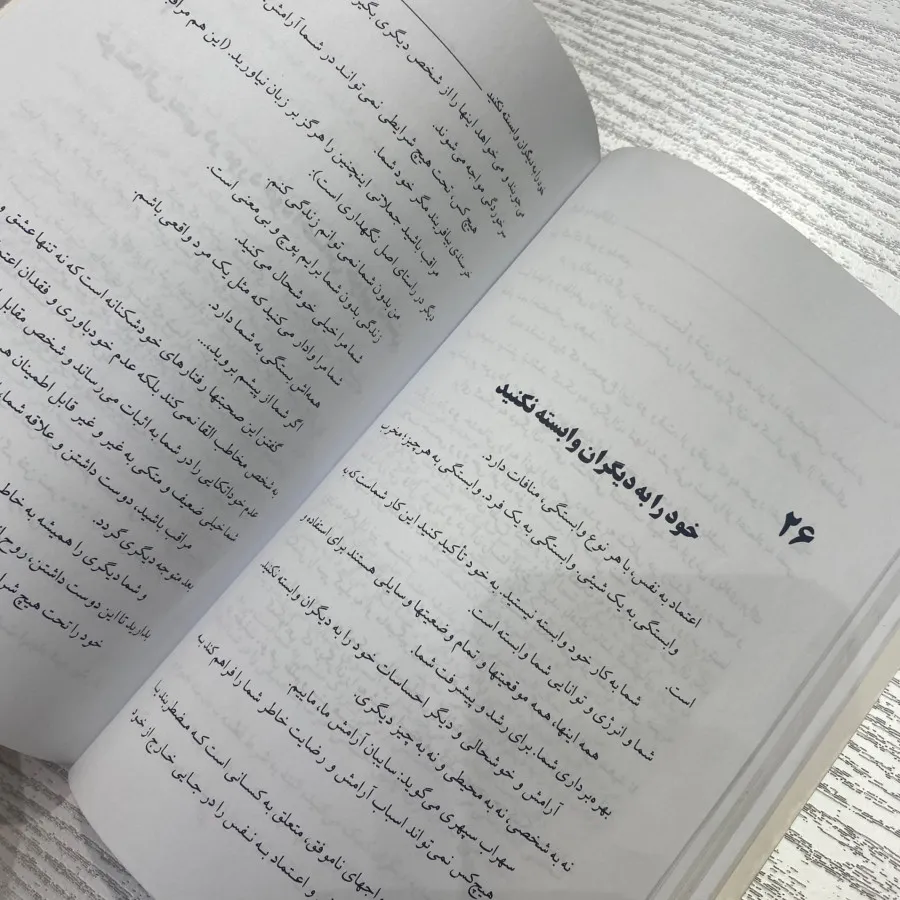 ۲۶
خود را به دیگران وابسته نکنید
اعتماد به نفس، با هر نوع وابستگی، منافات دارد.
وابستگی به یک شیئی. وابستگی به یک فرد. وابستگی به هر چیز، مخرب
است.
شما به کار خود وابسته نیستید. به خود تأکید کنید این کار شماست که به
شما و انرژی و توانایی شما وابسته است.
همه اینها، همه موقعیتها و تمام وضعیتها وسایلی هستند برای استفاده و
بهره‌برداری شما. برای رشد و پیشرفت شما.
آرامش و خوشحالی و دیگر احساسات خود را به دیگران وابسته نکنید
نه به شخصی، نه به محیطی و نه به چیز دیگری.
سهراب سپهری می‌گوید: سایبان آرامش ما، ماییم.
هیچ‌کس نمی‌تواند اسباب آرامش و رضایت خاطر شما را فراهم کند به
ناموفق، متعلق به کسانی است که مضطربند یا
و اعتماد به نفس را در جایی خارج از خود
خود را به دیگران وابسته نکنید
می‌جویند و می‌خواهد اینها را از شخص دیگری بگیر
سرخوردگی مواجه می‌شوند.
هیچ کس، تحت هیچ شرایطی نمی‌تواند در شما آرامش
خرسندی بیافریند مگر خود شما.
مراقب باشید جملاتی اینچنین را هرگز بر زبان نیاورید. (این هم مراقب
دیگر در راستای اصل نگهداری است).
من بدون شما نمی‌توانم زندگی کنم.
زندگی بدون شما برایم پوچ و بی‌معنی است.
شما مرا خیلی خوشحال می‌کنید.
شما مرا وادار می‌کنید که مثل یک مرد واقعی باشم.
همه‌اش بستگی به شما دارد.
اگر شما از پیشم بروید....
گفتن این صحبتها رفتارهای خودشکنانه است که نه تنها عشق و
به شخص مخاطب القا نمی‌کند بلکه عدم خودباوری و فقدان اعتم
علم خوداتکایی را در شما به اثبات می‌رساند و شخص مقابل
شما خیلی ضعیف و متکی به غیر و غیر قابل اطمینان هـ
مراقب باشید، دوست داشتن و علاقه شما
متوجه دیگری گردد.
و شما دیگری را همیشه به خاطر
بدارید تا این دوست داشتن، روح
خود را تحت هیچ شرا